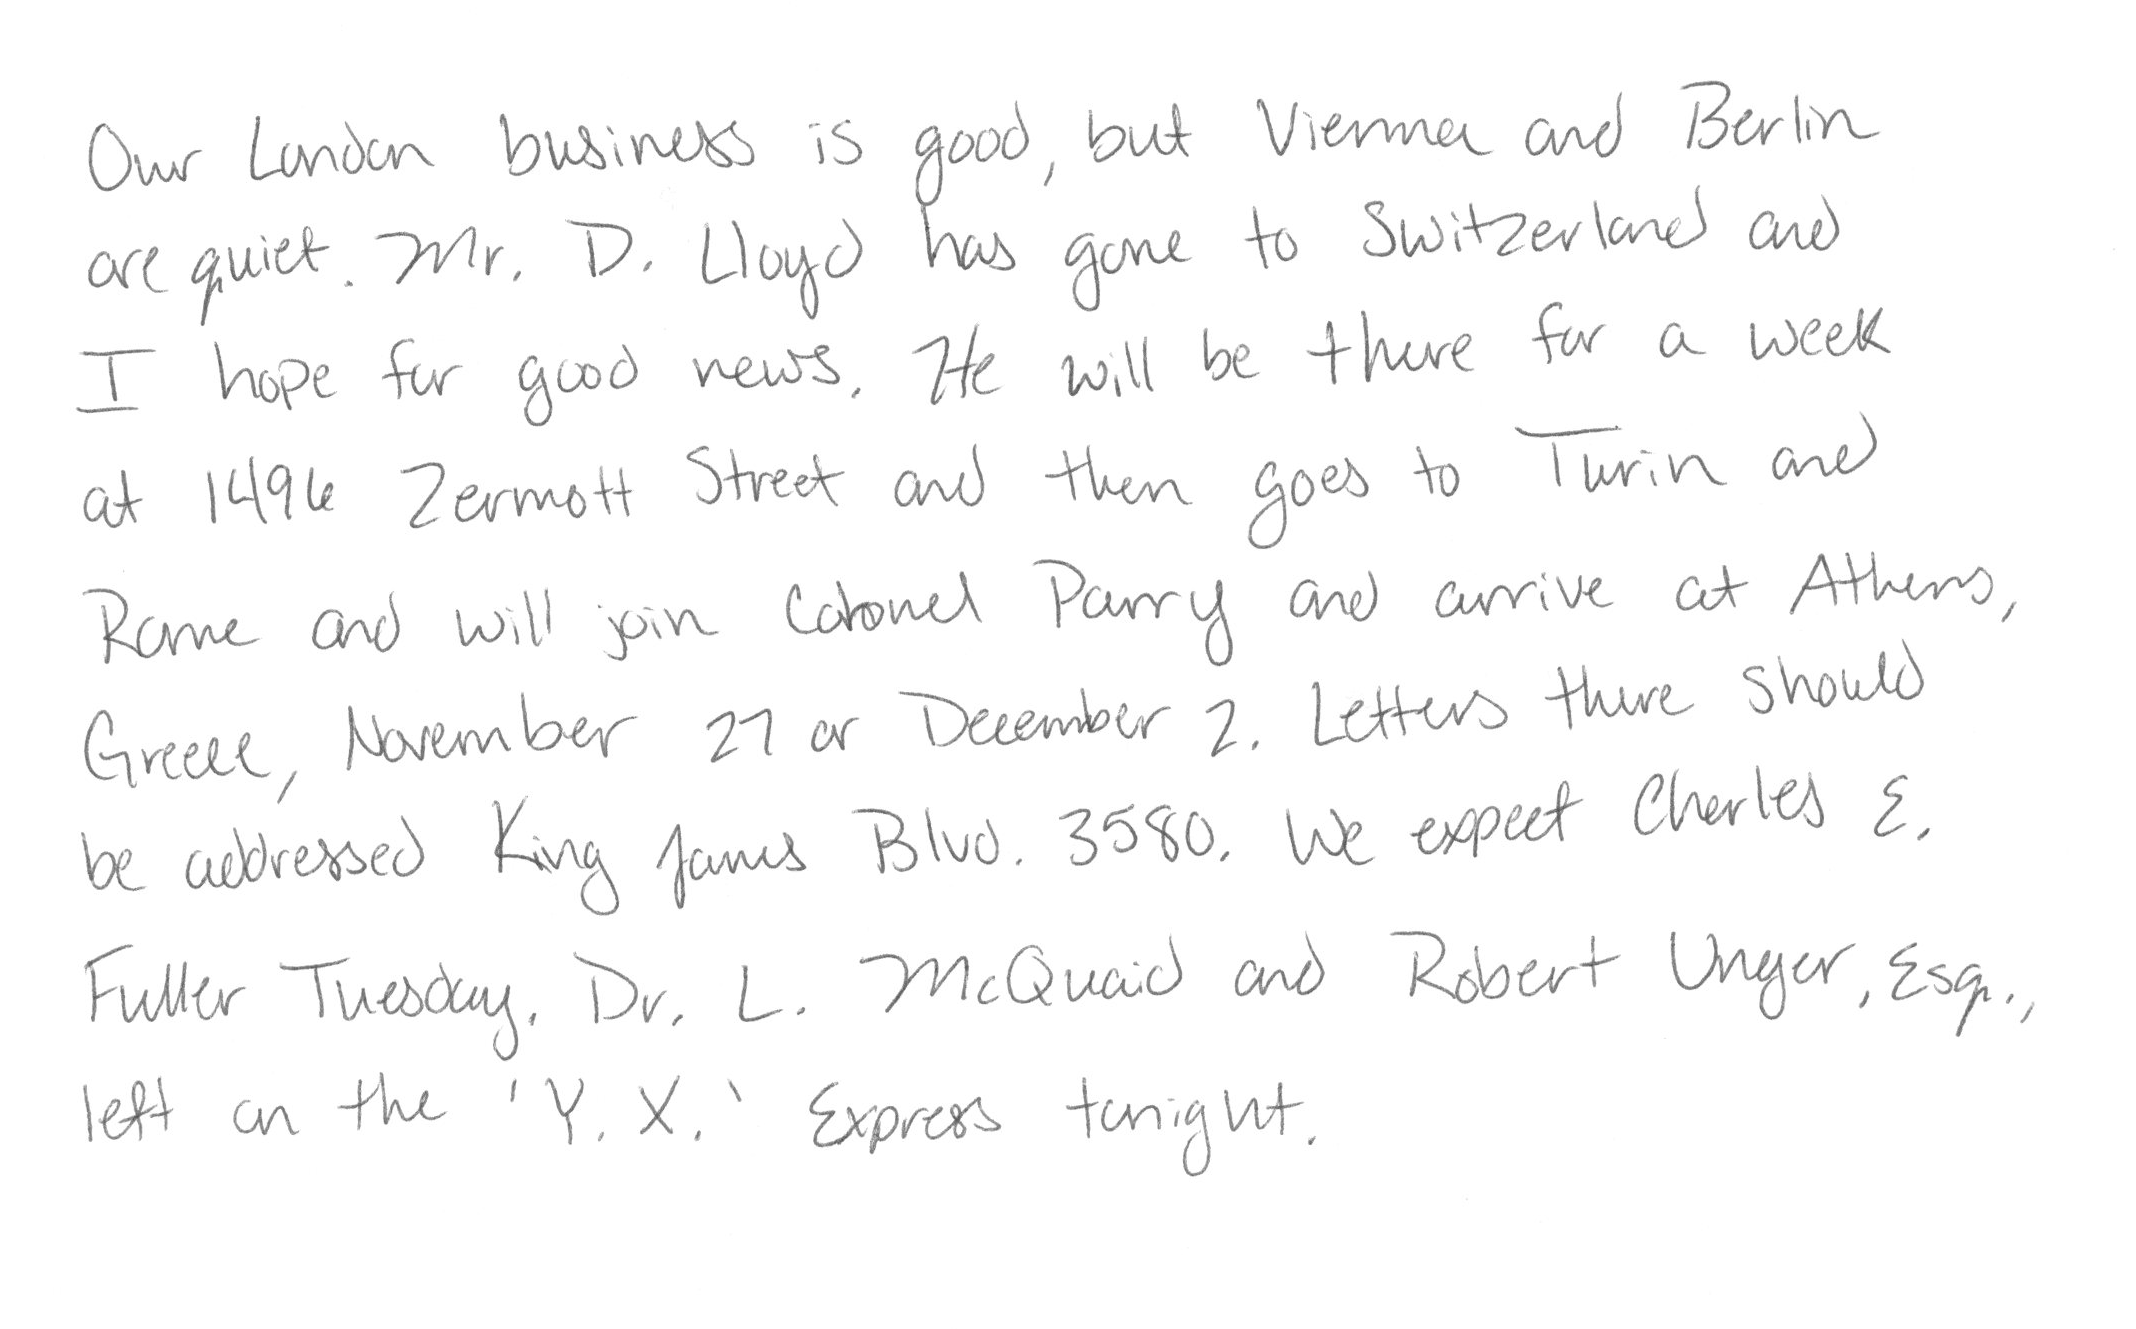 Our London business is good, but Vienna and Berlin
are quiet. Mr. D. Lloyd has gone to Switzerland and
I hope for good news. He will be there for a week
at 1496 Zermott Street and then goes to Turin and
Rome and will join Colonel Parry and arrive at Athens,
Greece, November 27 or December 2. Letters there should
be addressed King James Blvd. 3580. We expect Charles E.
Fuller Tuesday. Dr. L. McQuaid and Robert Unger, Esq.,
left on the 'Y. X.' Express tonight.